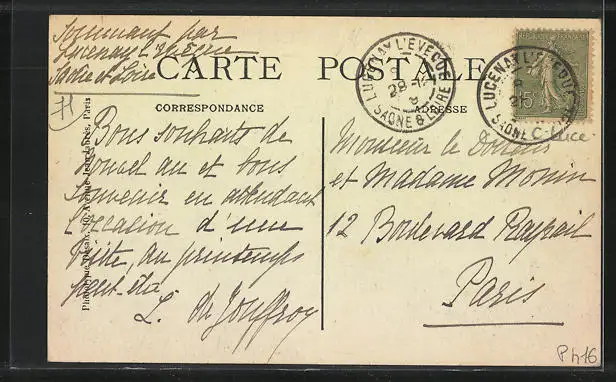 Sommant par
Lucenay l'Evêque
Saône et Loire
CARTE POSTALE
CORRESPONDANCE
ADRESSE
LUCENAY L'EVEQUE
28 - 12
SAONE & LOIRE
LUCENAY L'EVEQUE
SAONE
15c
C-Luce
71
Bons souhaits de
nouvel an et bons
souvenirs en attendant
l'occasion d'une
visite, au printemps
peut-être
L. de Jouffroy
Monsieur le Docteur
et Madame Monin
12 Boulevard Raspail
Paris
Avenue Jean-Jaurès, Paris
P416